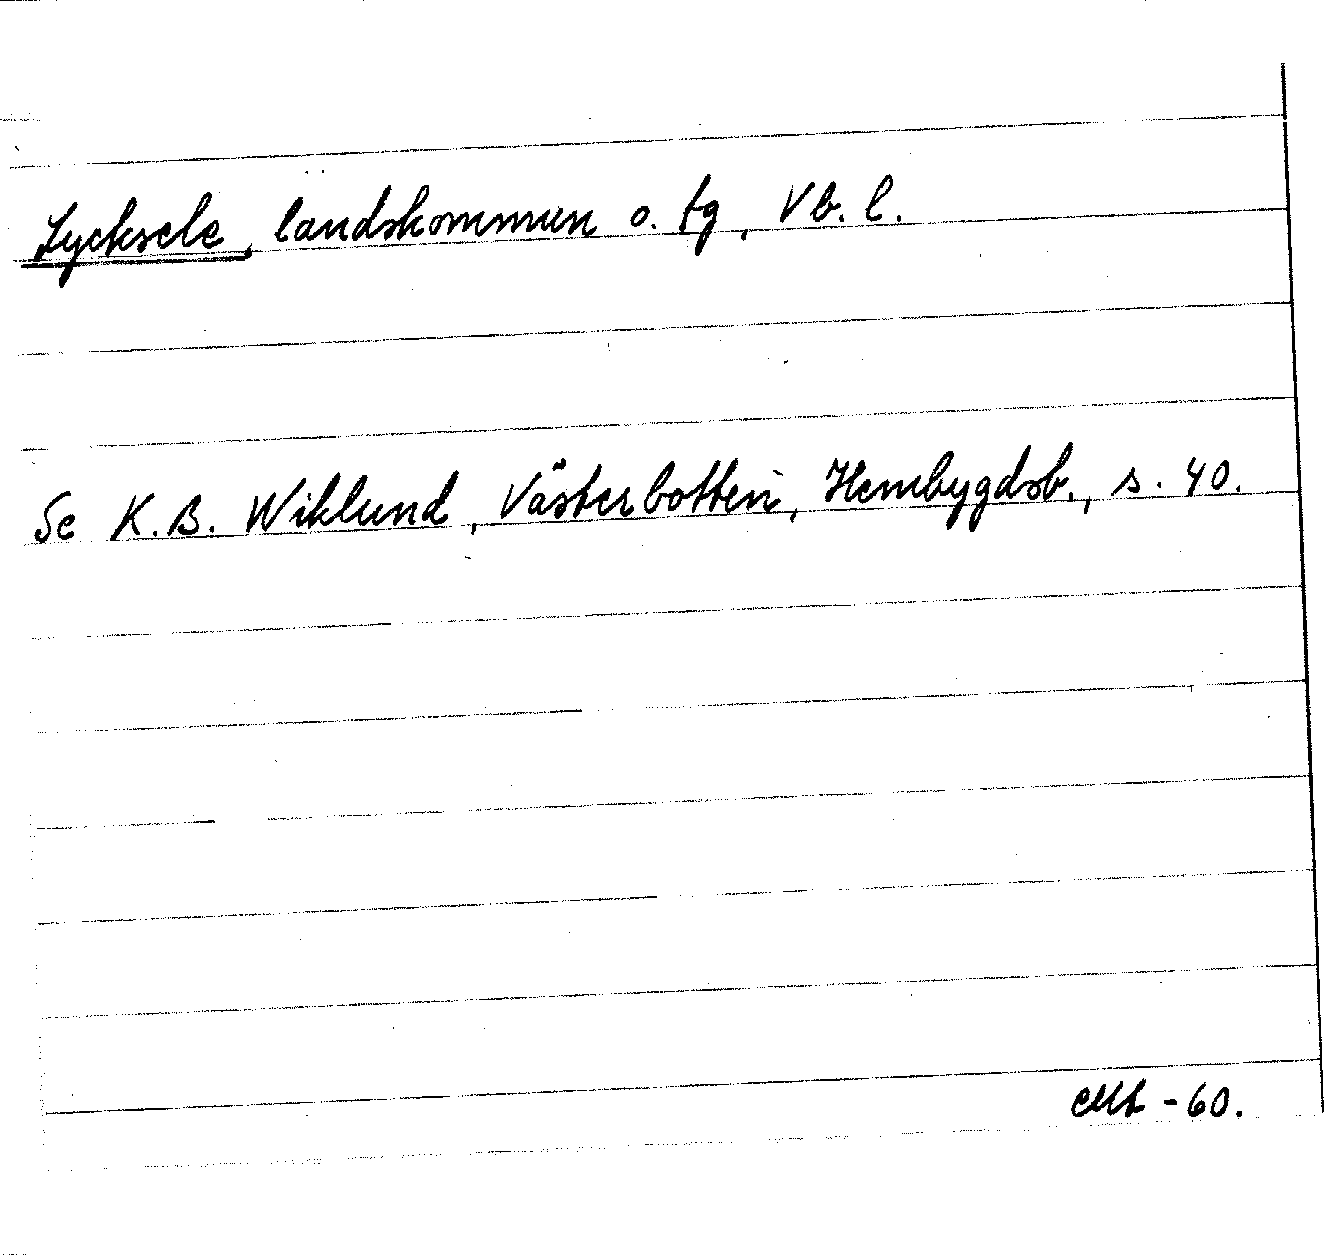 Lycksele, landskommun o. tg, Vb. l.
Se K.B. Wiklund, Västerbotten, Hembygdsb., s. 40.
-60.